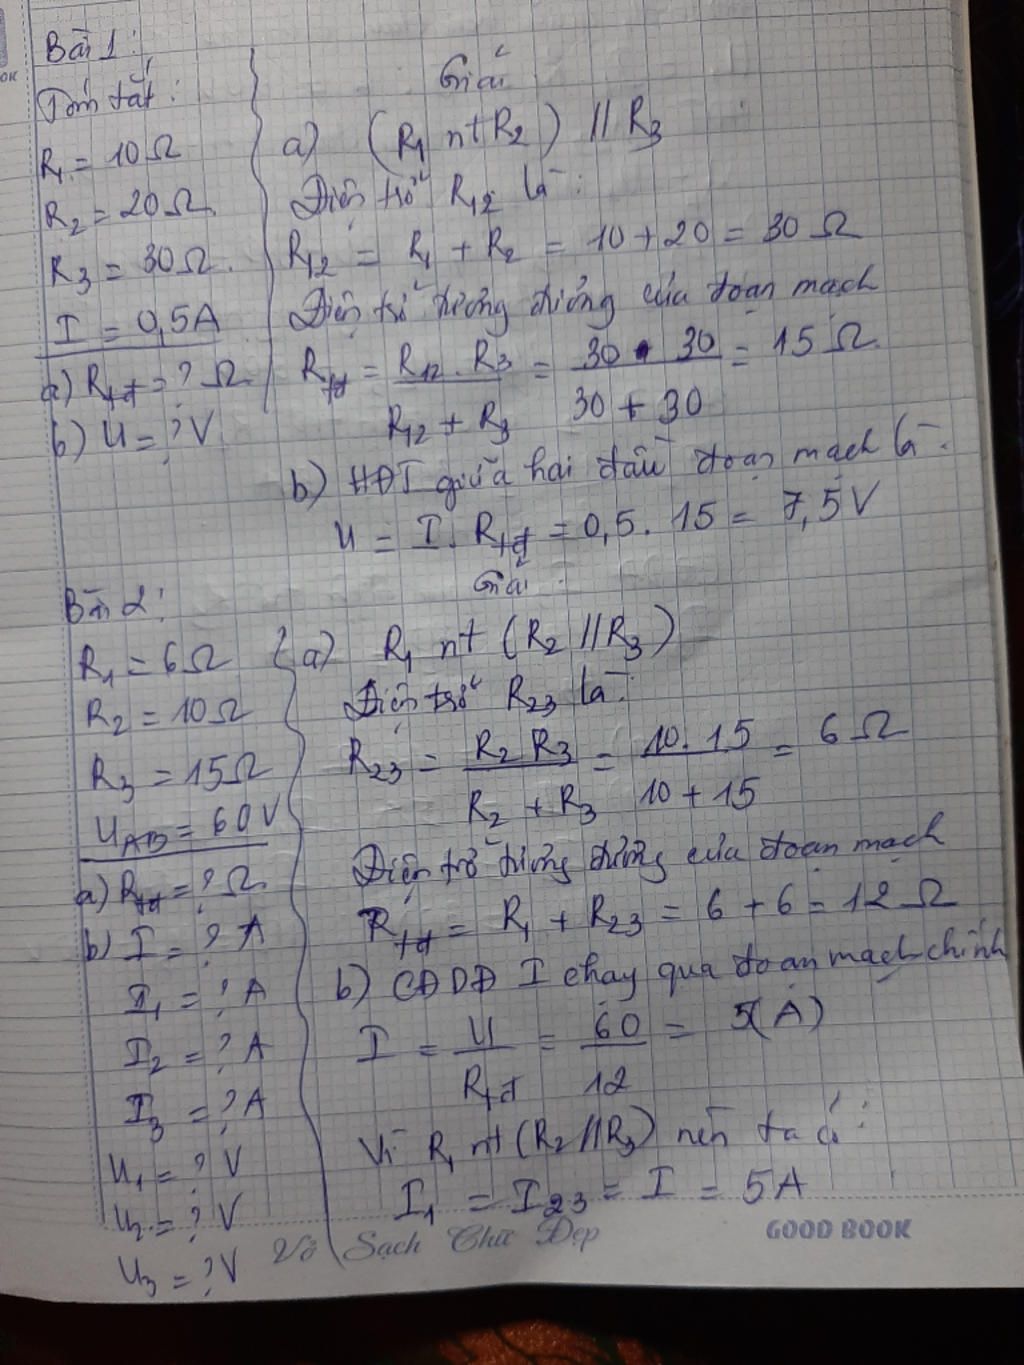 Bài 1:
Tóm tắt:
R1 = 10Ω
R2 = 20Ω
R3 = 30Ω.
I = 0,5A
a) Rtđ = ? Ω
b) U = ? V
Giải
a) (R1 nt R2) // R3
Điện trở R12 là:
R12 = R1 + R2 = 10 + 20 = 30 Ω
Điện trở tương đương của đoạn mạch
Rtđ = R12 . R3 / R12 + R3 = 30 . 30 / 30 + 30 = 15 Ω.
b) HĐT giữa hai đầu đoạn mạch là:
U = I. Rtđ = 0,5 . 15 = 7,5 V
Bài 2:
R1 = 6Ω
R2 = 10Ω
R3 = 15Ω
UAB = 60V
a) Rtđ = ? Ω
b) I = ? A
I1 = ? A
I2 = ? A
I3 = ? A
U1 = ? V
U2 = ? V
U3 = ? V
Giải:
a) R1 nt (R2 // R3)
Điện trở R23 là:
R23 = R2 R3 / R2 + R3 = 10 . 15 / 10 + 15 = 6 Ω
Điện trở tương đương của đoạn mạch
Rtđ = R1 + R23 = 6 + 6 = 12 Ω
b) CĐDĐ I chạy qua đoạn mạch chính
I = U / Rtđ = 60 / 12 = 5(A)
Vì R1 nt (R2 // R3) nên ta có:
I1 = I23 = I = 5A
Vở Sạch Chữ Đẹp
GOOD BOOK